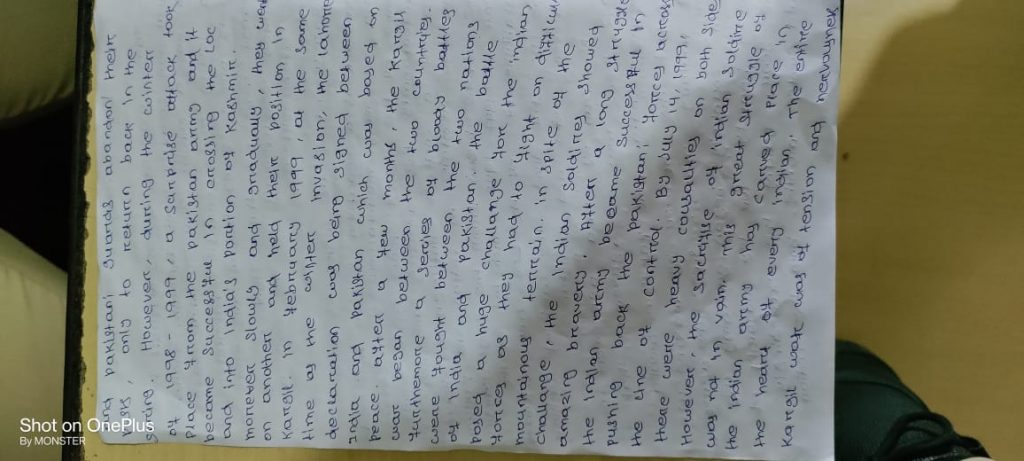 and pakistani guards abandon their
task, only to return back in the
spring. However, during the winter
of 1998-1999, a surprise attack took
Place from the pakistan army and it
became successful in crossing the LOC
and into India's portion of Kashmir.
moreover slowly and gradually, they went
on another and held their position in
Kargil. in february 1999, at the same
time as the winter invasion, the lahore
declaration was being signed between
India and pakistan which was based on
peace. after a few months, the Kargil
war began between the two countries.
furthermore a series of bloody battles
were fought between the two nations
of India and pakistan. the battle
posed a huge challenge for the indian
forces as they had to fight on difficult
mountainous terrain. in spite of the
challange, the indian soldirey showed
amazing bravery. After a long struggle
the indian army became successful in
pushing back the pakistani forces across
the line of control. By July 14, 1999,
there were heavy causalties on both side
However, the sacrifie of indian soldire
was not in vain, this great struggle of
the indian army has carved place in
the heart of every indian. The entire
Kargil war was of tension and nervousness
Shot on OnePlus
By MONSTER